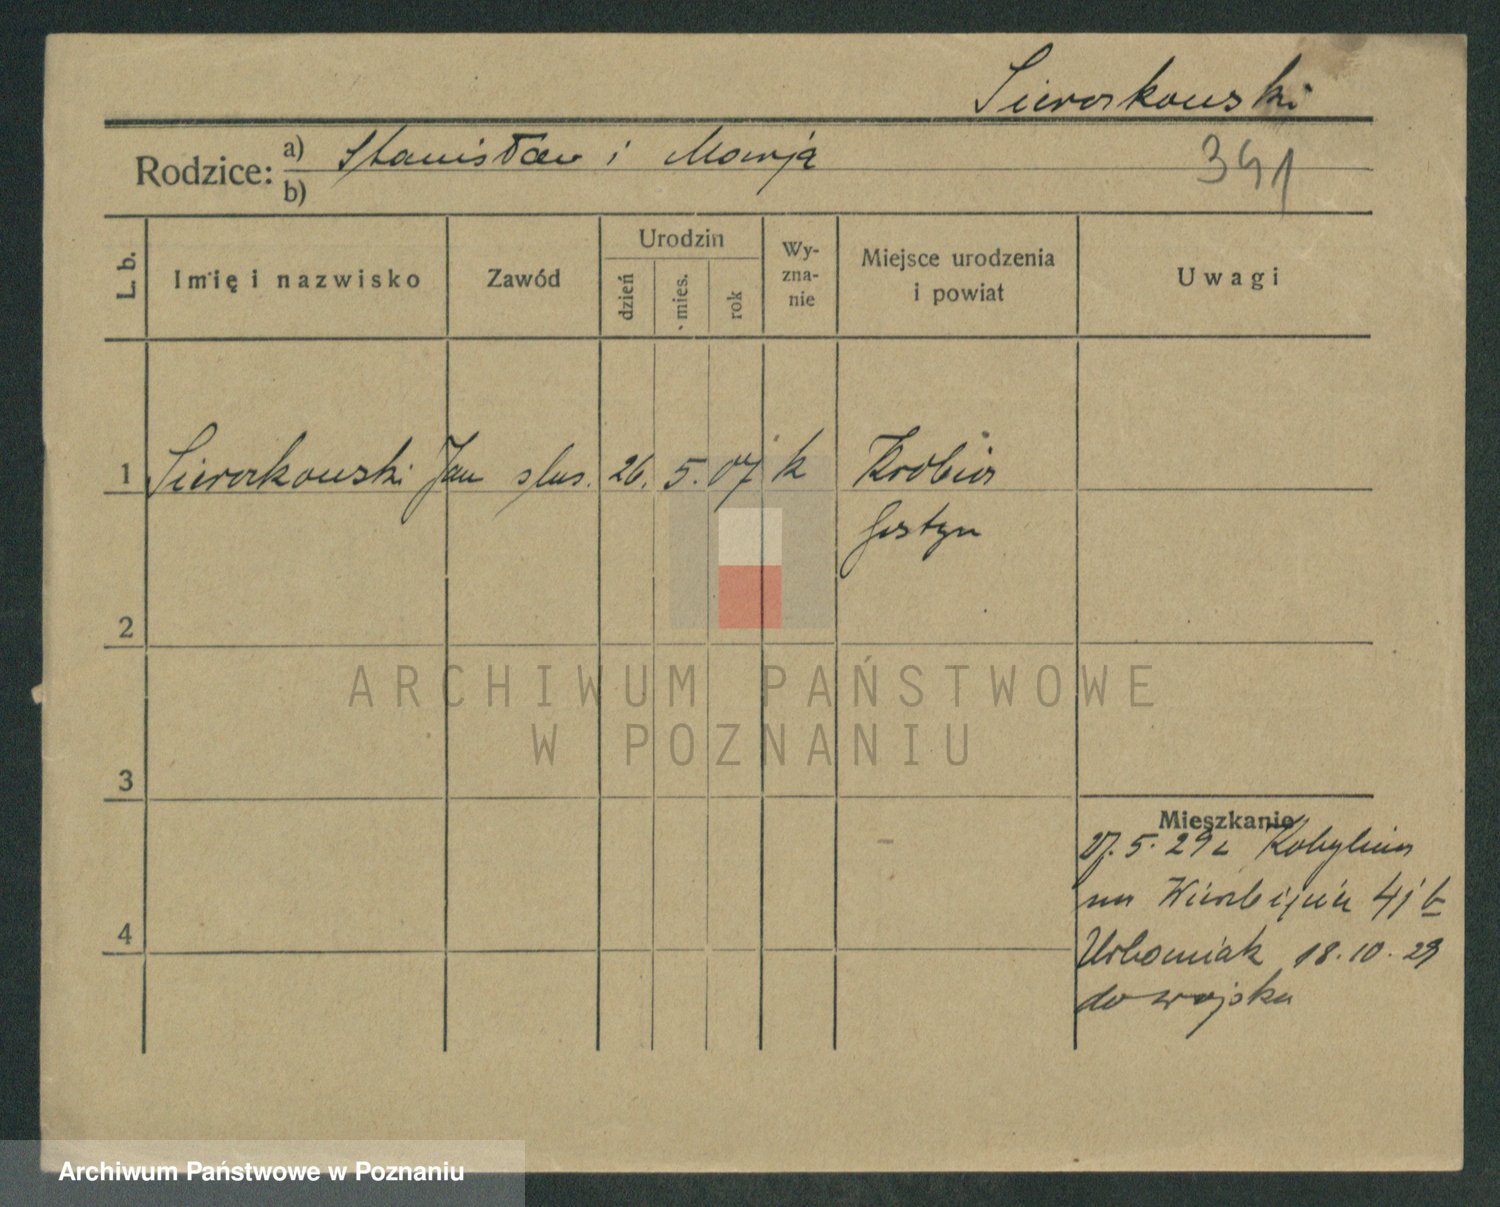 Sieroszkowski
Rodzice: a) Stanisław i Marja
b)
341
L. b.
Imię i nazwisko
Zawód
Urodzin
dzień
mies.
rok
Wy-
zna-
nie
Miejsce urodzenia
i powiat
Uwagi
1 Jan 26. 5. 07 k Krobia
Gostyn
2
3
4
Mieszkanie
5. 29 z Kobylina
na 41
Urbaniak 18. 10. 29
do wojska
ARCHIWUM PAŃSTWOWE
W POZNANIU
Archiwum Państwowe w Poznaniu